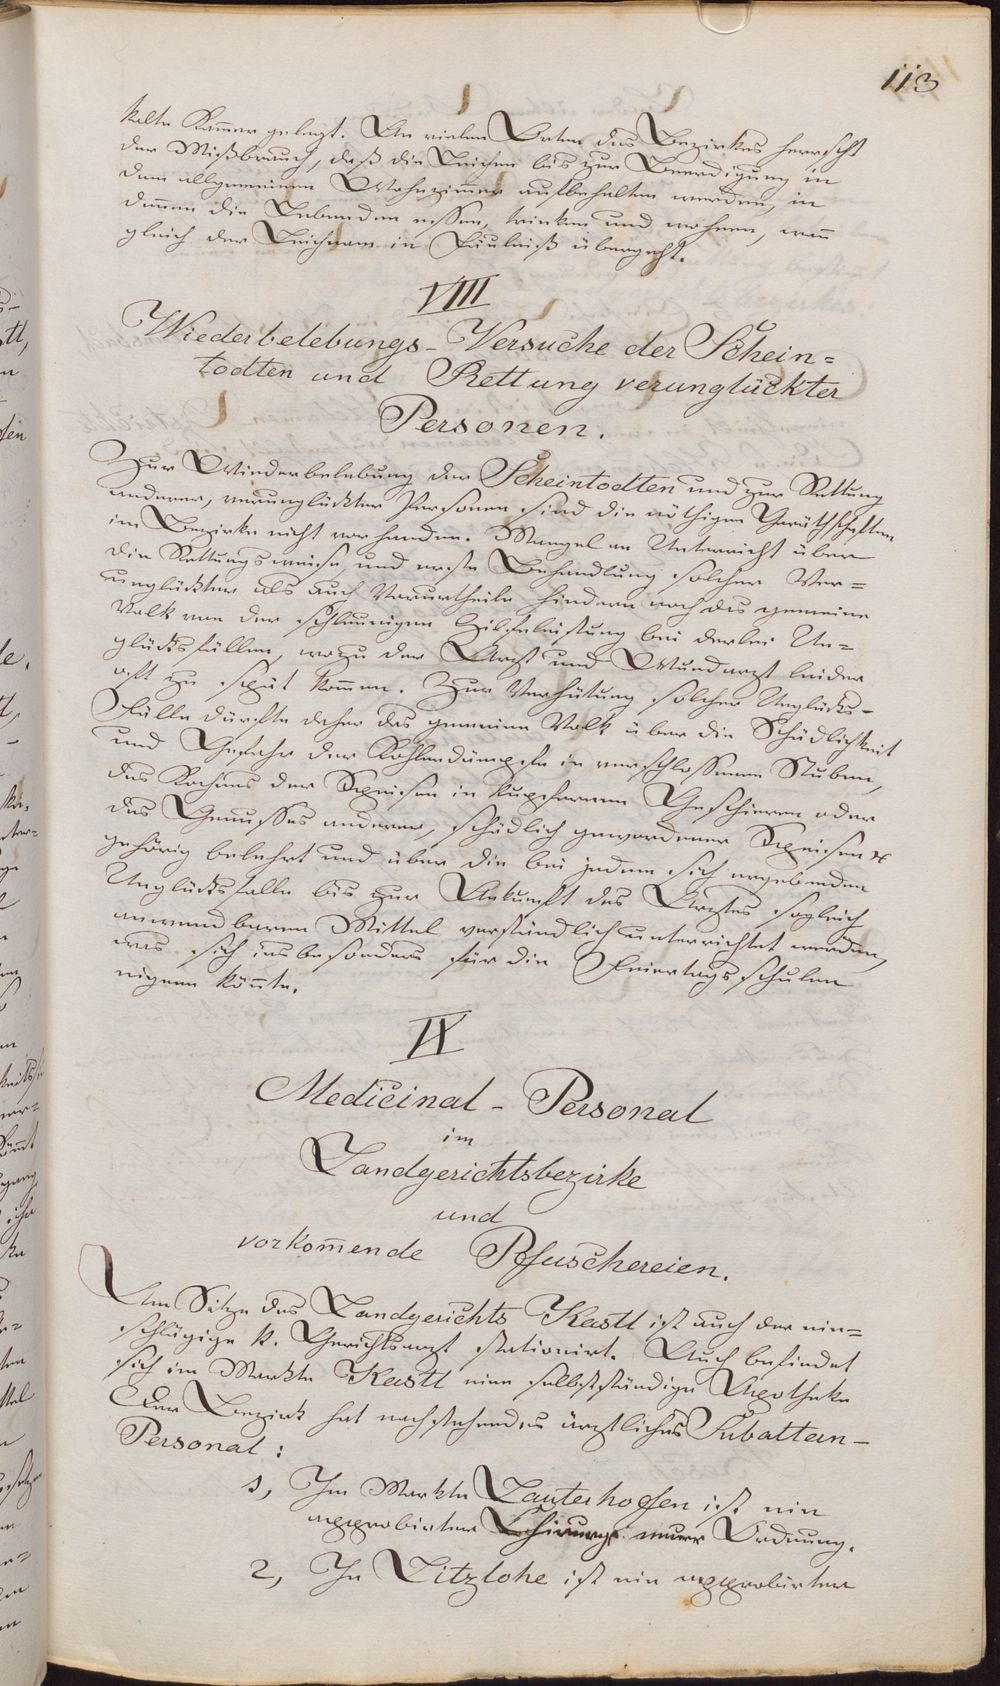 113
kalte Kam̅er gelegt. An vielen Orten des Bezirkes herrscht
der Mißbrauch, daß die Leichen bis zur Beerdigung in
dem allgemeinen Wohnzim̅er aufbehalten werden, in
denen die Lebenden essen, trinken und wohnen, wen̅
gleich der Leichnam in Fäulniß übergeht.
VIII
Wiederbelebungs-Versuche der Schein=
todten und Rettung verunglückter
Personen.
Zur Wiederbelebung der Scheintodten und zur Rettung
anderer, verunglückter Personen sind die nöthigen Geräthschaften
im Bezirke nicht vorhanden. Mangel an Unterricht über
die Rettungsweise und erste Behandlung solcher Ver=
unglückter als auch Vorurtheile hindern noch das gemeine
Volk von der schleunigen Hilfeleistung bei derlei Un=
glücksfällen, wozu der Arzt und Wundarzt leider
oft zu spät kom̅en. Zur Verhütung solcher Unglücks=
Fälle dürfte daher das gemeine Volk über die Schädlichkeit
und Gefahr der Kohlendämpfe in verschlossenen Stuben,
des Kochens der Speisen in kupfernen Geschirren oder
des Genusses anderer, schädlich gewordener Speisen
gehörig belehrt und über die bei jedem sich ergebenden
Unglücksfalle bis zur Ankunft des Arztes sogleich
anwendbaren Mittel verständlich unterrichtet werden,
was sich insbesonders für die Feiertagsschulen
eignen kön̅te.
IX
Medicinal-Personal
im
Landgerichtsbezirke
und
vorkom̅ende Pfuschereien.
Am Sitze des Landgerichts Kastl ist auch der ein=
schlägige k. Gerichtsarzt stationirt. Auch befindet
sich im Markte Kastl eine selbstständige Apotheke
Der Bezirk hat nachstehendes ärztliches Subaltern-
Personal:
1, Im Markte Lauterhofen ist ein
approbirter Chirurg neuer Ordnung.
2, In Litzlohe ist ein approbirter